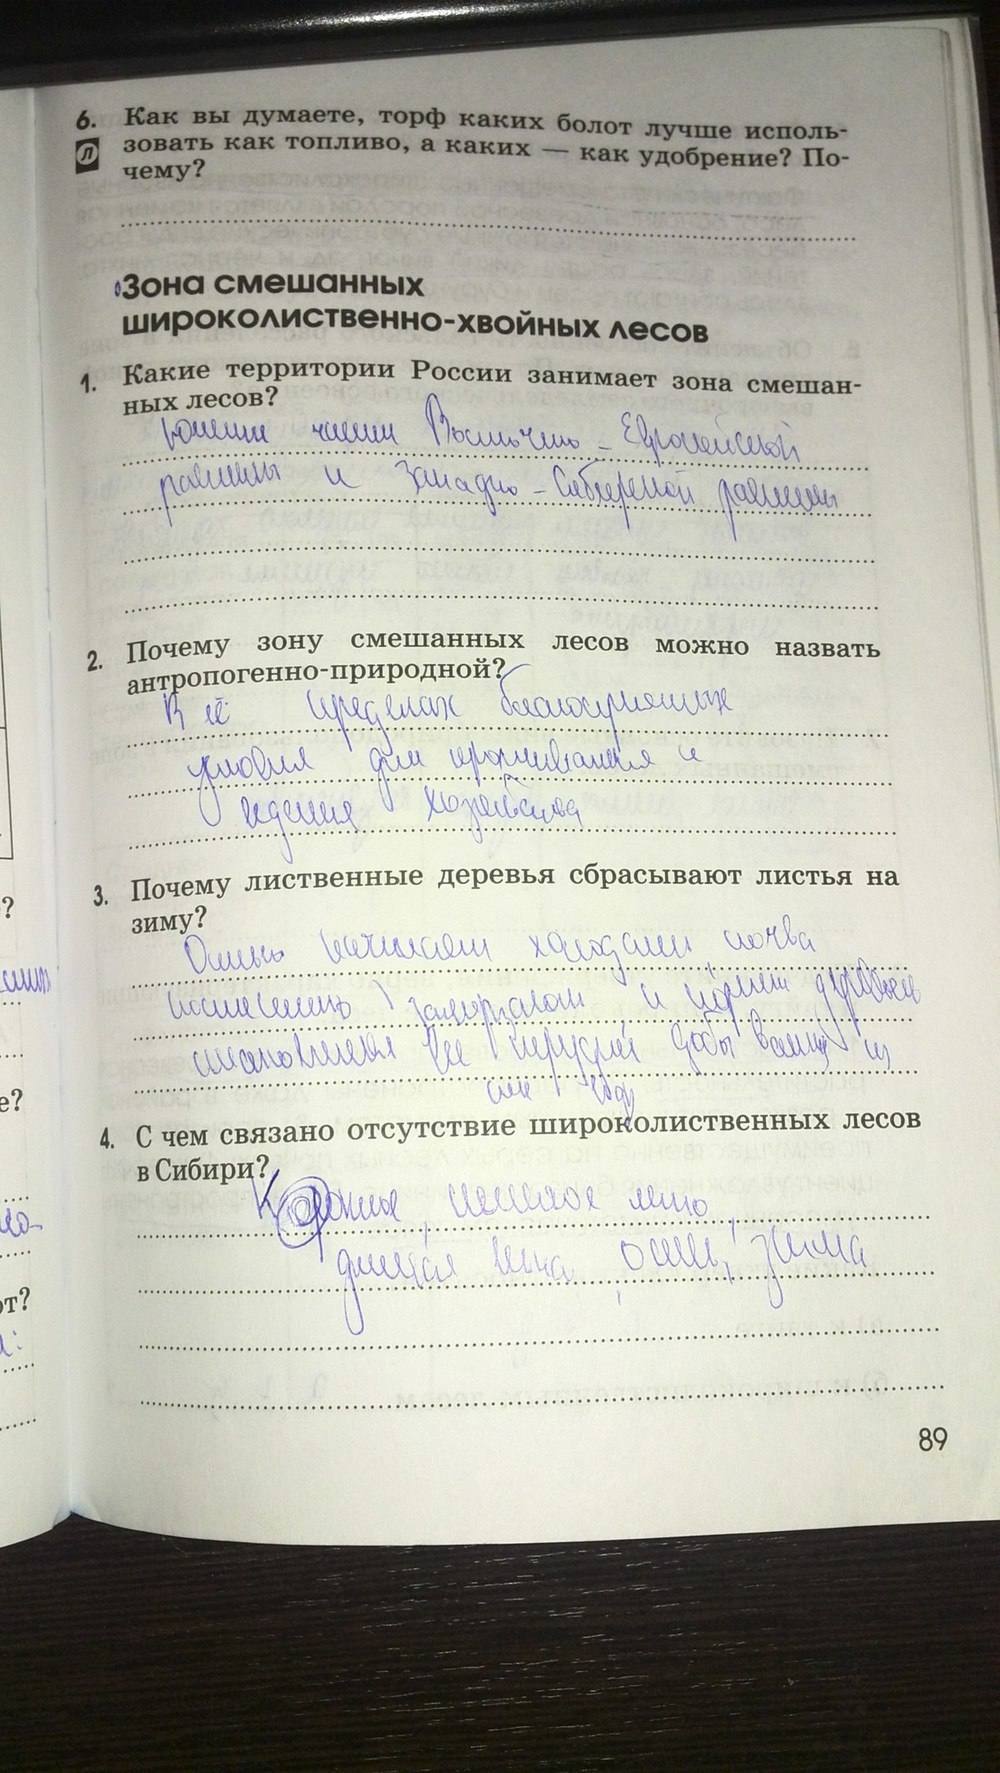 6. Как вы думаете, торф каких болот лучше исполь-
л зовать как топливо, а каких — как удобрение? По-
чему?
Зона смешанных
широколиственно-хвойных лесов
1. Какие территории России занимает зона смешан-
ных лесов?
южные части Восточно-Европейской
равнины и Западно-Сибирской равнины
2. Почему зону смешанных лесов можно назвать
антропогенно-природной?
В её пределах благоприятных
условия для проживания и
ведения хозяйства
3. Почему лиственные деревья сбрасывают листья на
зиму?
Осенью начинает холодать почва
постепенно замерзает и корням деревьев
становится все труднее добывать из
4. С чем связано отсутствие широколиственных лесов
в Сибири?
лето,
длинная осень, зима
89
?
е?
от?